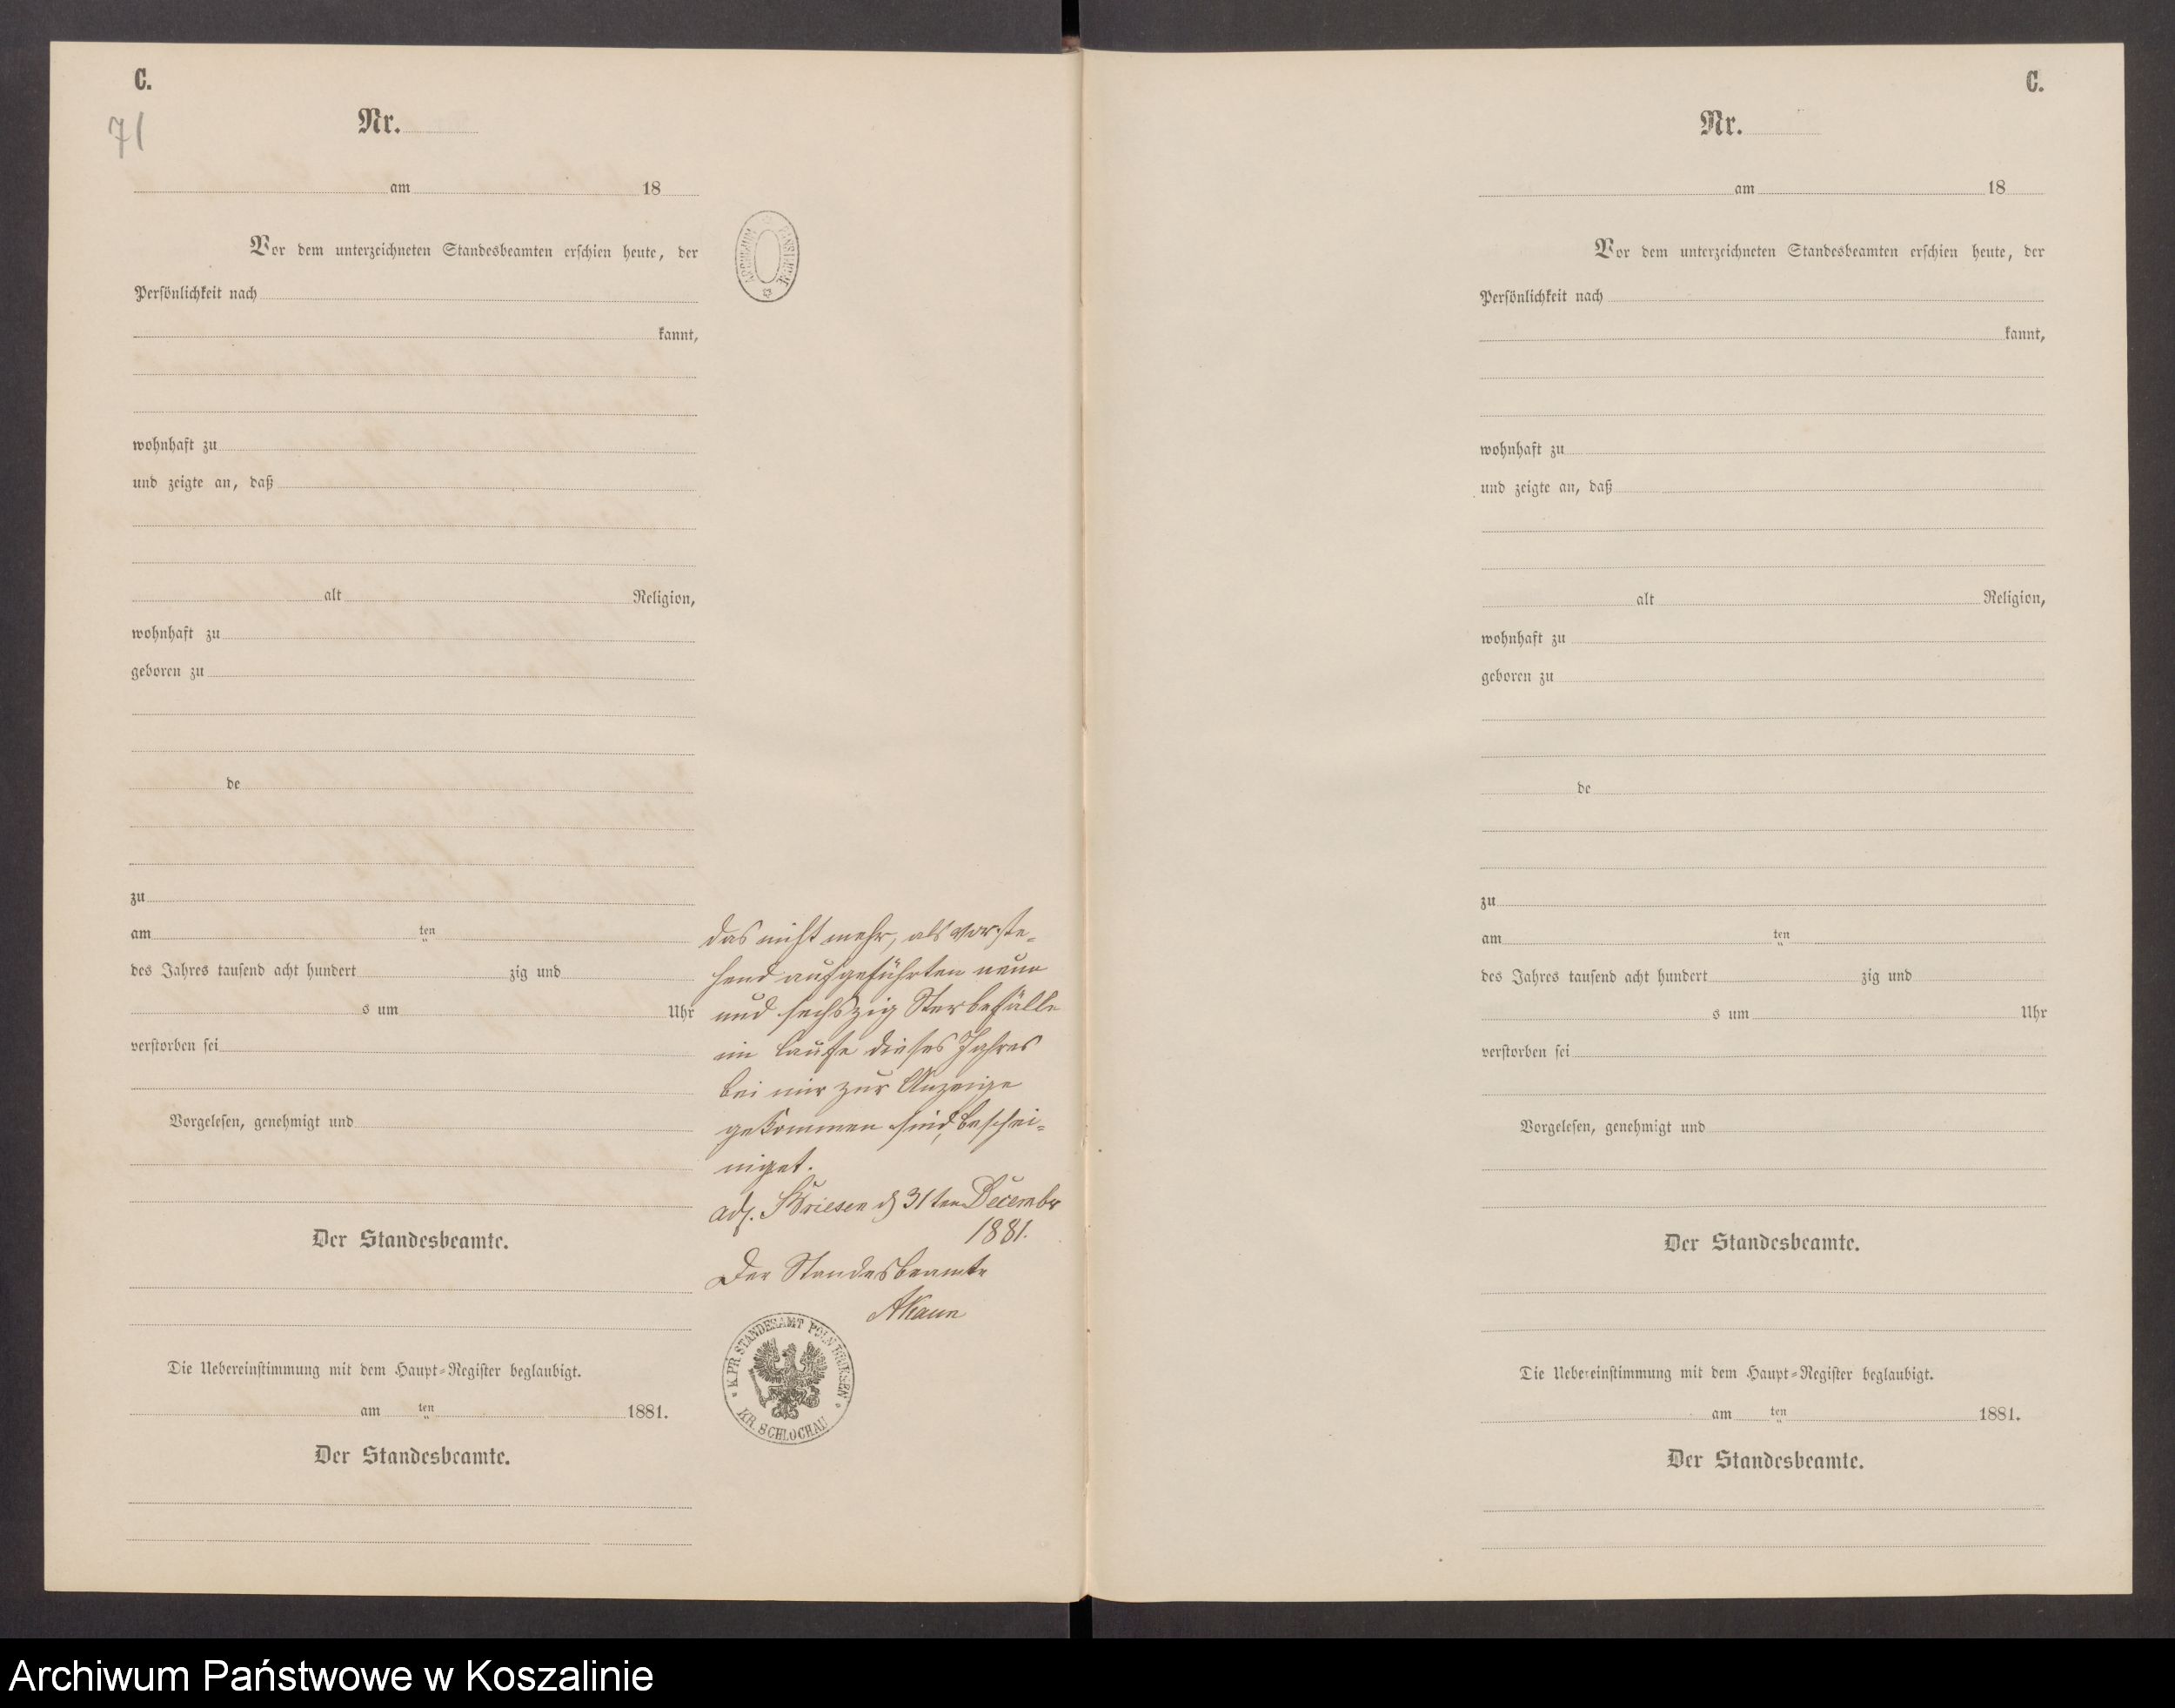 C.
71
Nr.
am 18
Vor dem unterzeichneten Standesbeamten erschien heute, der
Persönlichkeit nach
kannt,
wohnhaft zu
und zeigte an, daß
alt Religion,
wohnhaft zu
geboren zu
de
zu
am ten
des Jahres tausend acht hundert zig und
s um Uhr
verstorben sei
Vorgelesen, genehmigt und
Der Standesbeamte.
Die Uebereinstimmung mit dem Haupt-Register beglaubigt.
am ten 1881.
Der Standesbeamte.
ARCHIWUM
das nicht mehr, als vorste-
hend aufgeführten neun
und sechszig Sterbefälle
im Laufe dieses Jahres
bei mir zur Anzeige
gekommen sind, beschei-
niget.
Briesen d 31ten December
1881.
Der Standesbeamte
K. PR. STANDESAMT POLN. BRIESEN
KR. SCHLOCHAU
C.
Nr.
am 18
Vor dem unterzeichneten Standesbeamten erschien heute, der
Persönlichkeit nach
kannt,
wohnhaft zu
und zeigte an, daß
alt Religion,
wohnhaft zu
geboren zu
de
zu
am ten
des Jahres tausend acht hundert zig und
s um Uhr
verstorben sei
Vorgelesen, genehmigt und
Der Standesbeamte.
Die Uebereinstimmung mit dem Haupt-Register beglaubigt.
am ten 1881.
Der Standesbeamte.
Archiwum Państwowe w Koszalinie